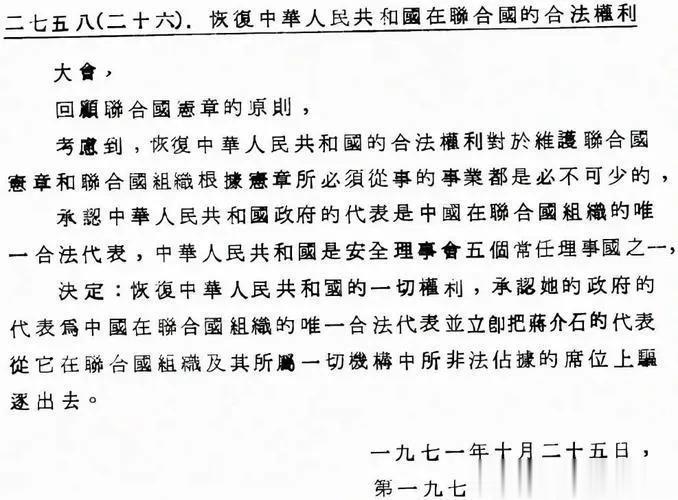 二七五八(二十六). 恢復中華人民共和國在聯合國的合法權利
大會，
回顧聯合國憲章的原則，
考慮到，恢復中華人民共和國的合法權利對於維護聯合國
憲章和聯合國組織根據憲章所必須從事的事業都是必不可少的，
承認中華人民共和國政府的代表是中國在聯合國組織的唯
一合法代表，中華人民共和國是安全理事會五個常任理事國之一，
決定：恢復中華人民共和國的一切權利，承認她的政府的
代表爲中國在聯合國組織的唯一合法代表並立卽把蔣介石的代表
從它在聯合國組織及其所屬一切機構中所非法佔據的席位上驅
逐出去。
一九七一年十月二十五日，
第一九七